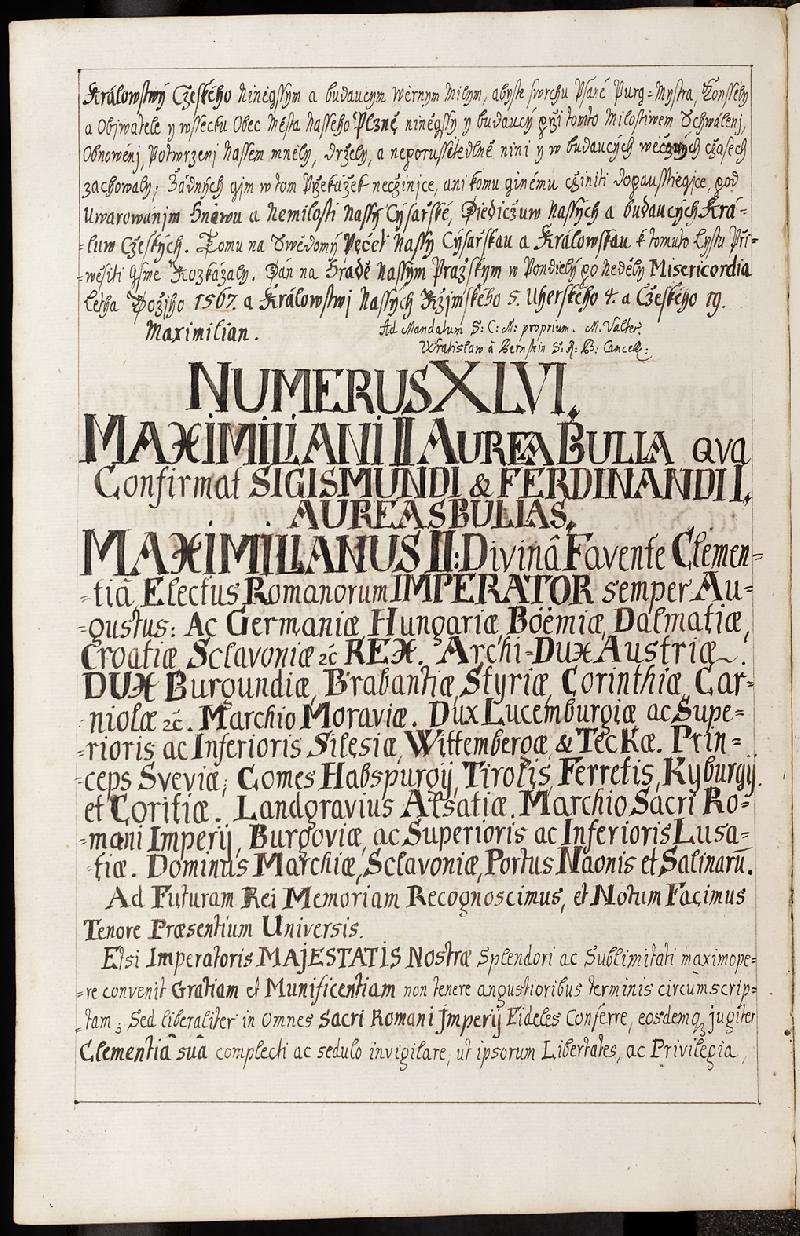 Královstwý Cžeského ninēgssým a budaucým wěrným Milým, abyste swrchu Psané Purg=Mystra, Konssely
a Obywatele y wssecku Obec Města Nassého Plzně ninēgssý y budaucý při tomto Milostiwém Schwálenj,
Obnowenj, Potwrzenj Nassem mněly, držely, a neporussitedlně nini y w budaucých wěcžných cžasech
zachowaly; Žádných gim w tom Překážek necžinjce, ani komu ginému cžiniti dopausstiegjce, pod
Uwarowanjm Hněwu a Nemilosti Nassý Cýsařské, Diedicžuw Nassých a budaucých Krá=
=luw Cžeských. Tomu na Swědomý Pecět Nassý Cýsařskau a Královskau k tomuto Lystu Při=
=wěsiti gsme Rozkázaly. Dán na Hradě Nassým Pražským w Pondielý po Neděly Misericordia
Létha Božjho 1567. a Královstwj Nassých Ržjmského 5. Uherského 4. a Cžeského 19.
Maximilian. Ad Mandatum S: C: M: proprium. M. Walter.
Wratislaw à Bernstein S: R: B: Cancell:
NUMERUS XLVI.
MAXIMILIANI II AUREA BULLA qva
Confirmat SIGISMUNDI & FERDINANDI I.
AUREAS BULLAS.
MAXIMILIANUS II: Divinâ Favente Clemen=
=tiâ Electus Romanorum IMPERATOR semper Au=
=gustus: Ac Germaniæ, Hungariæ, Böëmiæ, Dalmatiæ,
Croatiæ Sclavoniæ &c REX. Archi-Dux Austriæ.
DUX Burgundiæ, Brabantiæ, Styriæ, Corinthiæ, Car=
=niolæ &c. Marchio Moraviæ. Dux Lucemburgiæ ac Supe=
=rioris ac Inferioris Silesiæ, Wittembergæ & Teckæ. Prin=
=ceps Sveviæ; Comes Habspurgij, Tirolis, Ferretis, Kyburgij.
et Goritiæ. Landgravius Alsatiæ. Marchio Sacri Ro=
=mani Imperij, Burgoviæ, ac Superioris ac Inferioris Lusa=
=tiæ. Dominus Marchiæ, Sclavoniæ, Portus Naonis et Salinarū.
Ad Futuram Rei Memoriam Recognoscimus, et Notum Facimus
Tenore Præsentium Universis.
Etsi Imperatoris MAJESTATIS Nostræ Splendori ac Sublimitati maximope=
=re convenit Gratiam et Munificentiam non tenere angustioribus terminis circumscrip=
=tam; Sed liberaliter in Omnes Sacri Romani Jmperij Fideles Conferre, eosdemq; jugiter
Clementiâ suâ complecti ac sedulo invigilare, ut ipsorum Libertates, ac Privilegia,